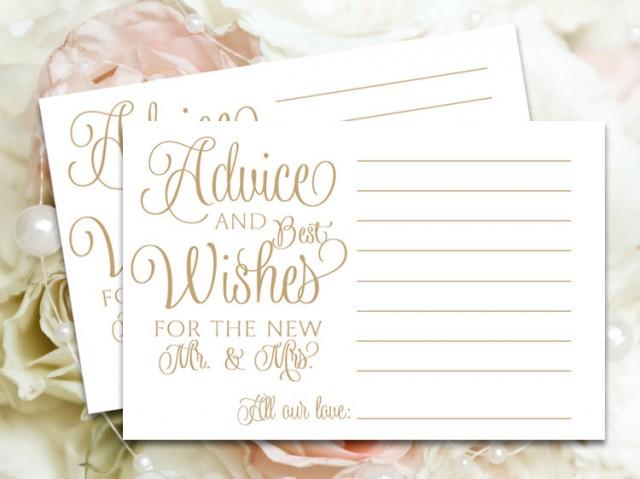 Advice
AND Best
Wishes
FOR THE NEW
Mr. & Mrs.
All our love:
Advice
FO